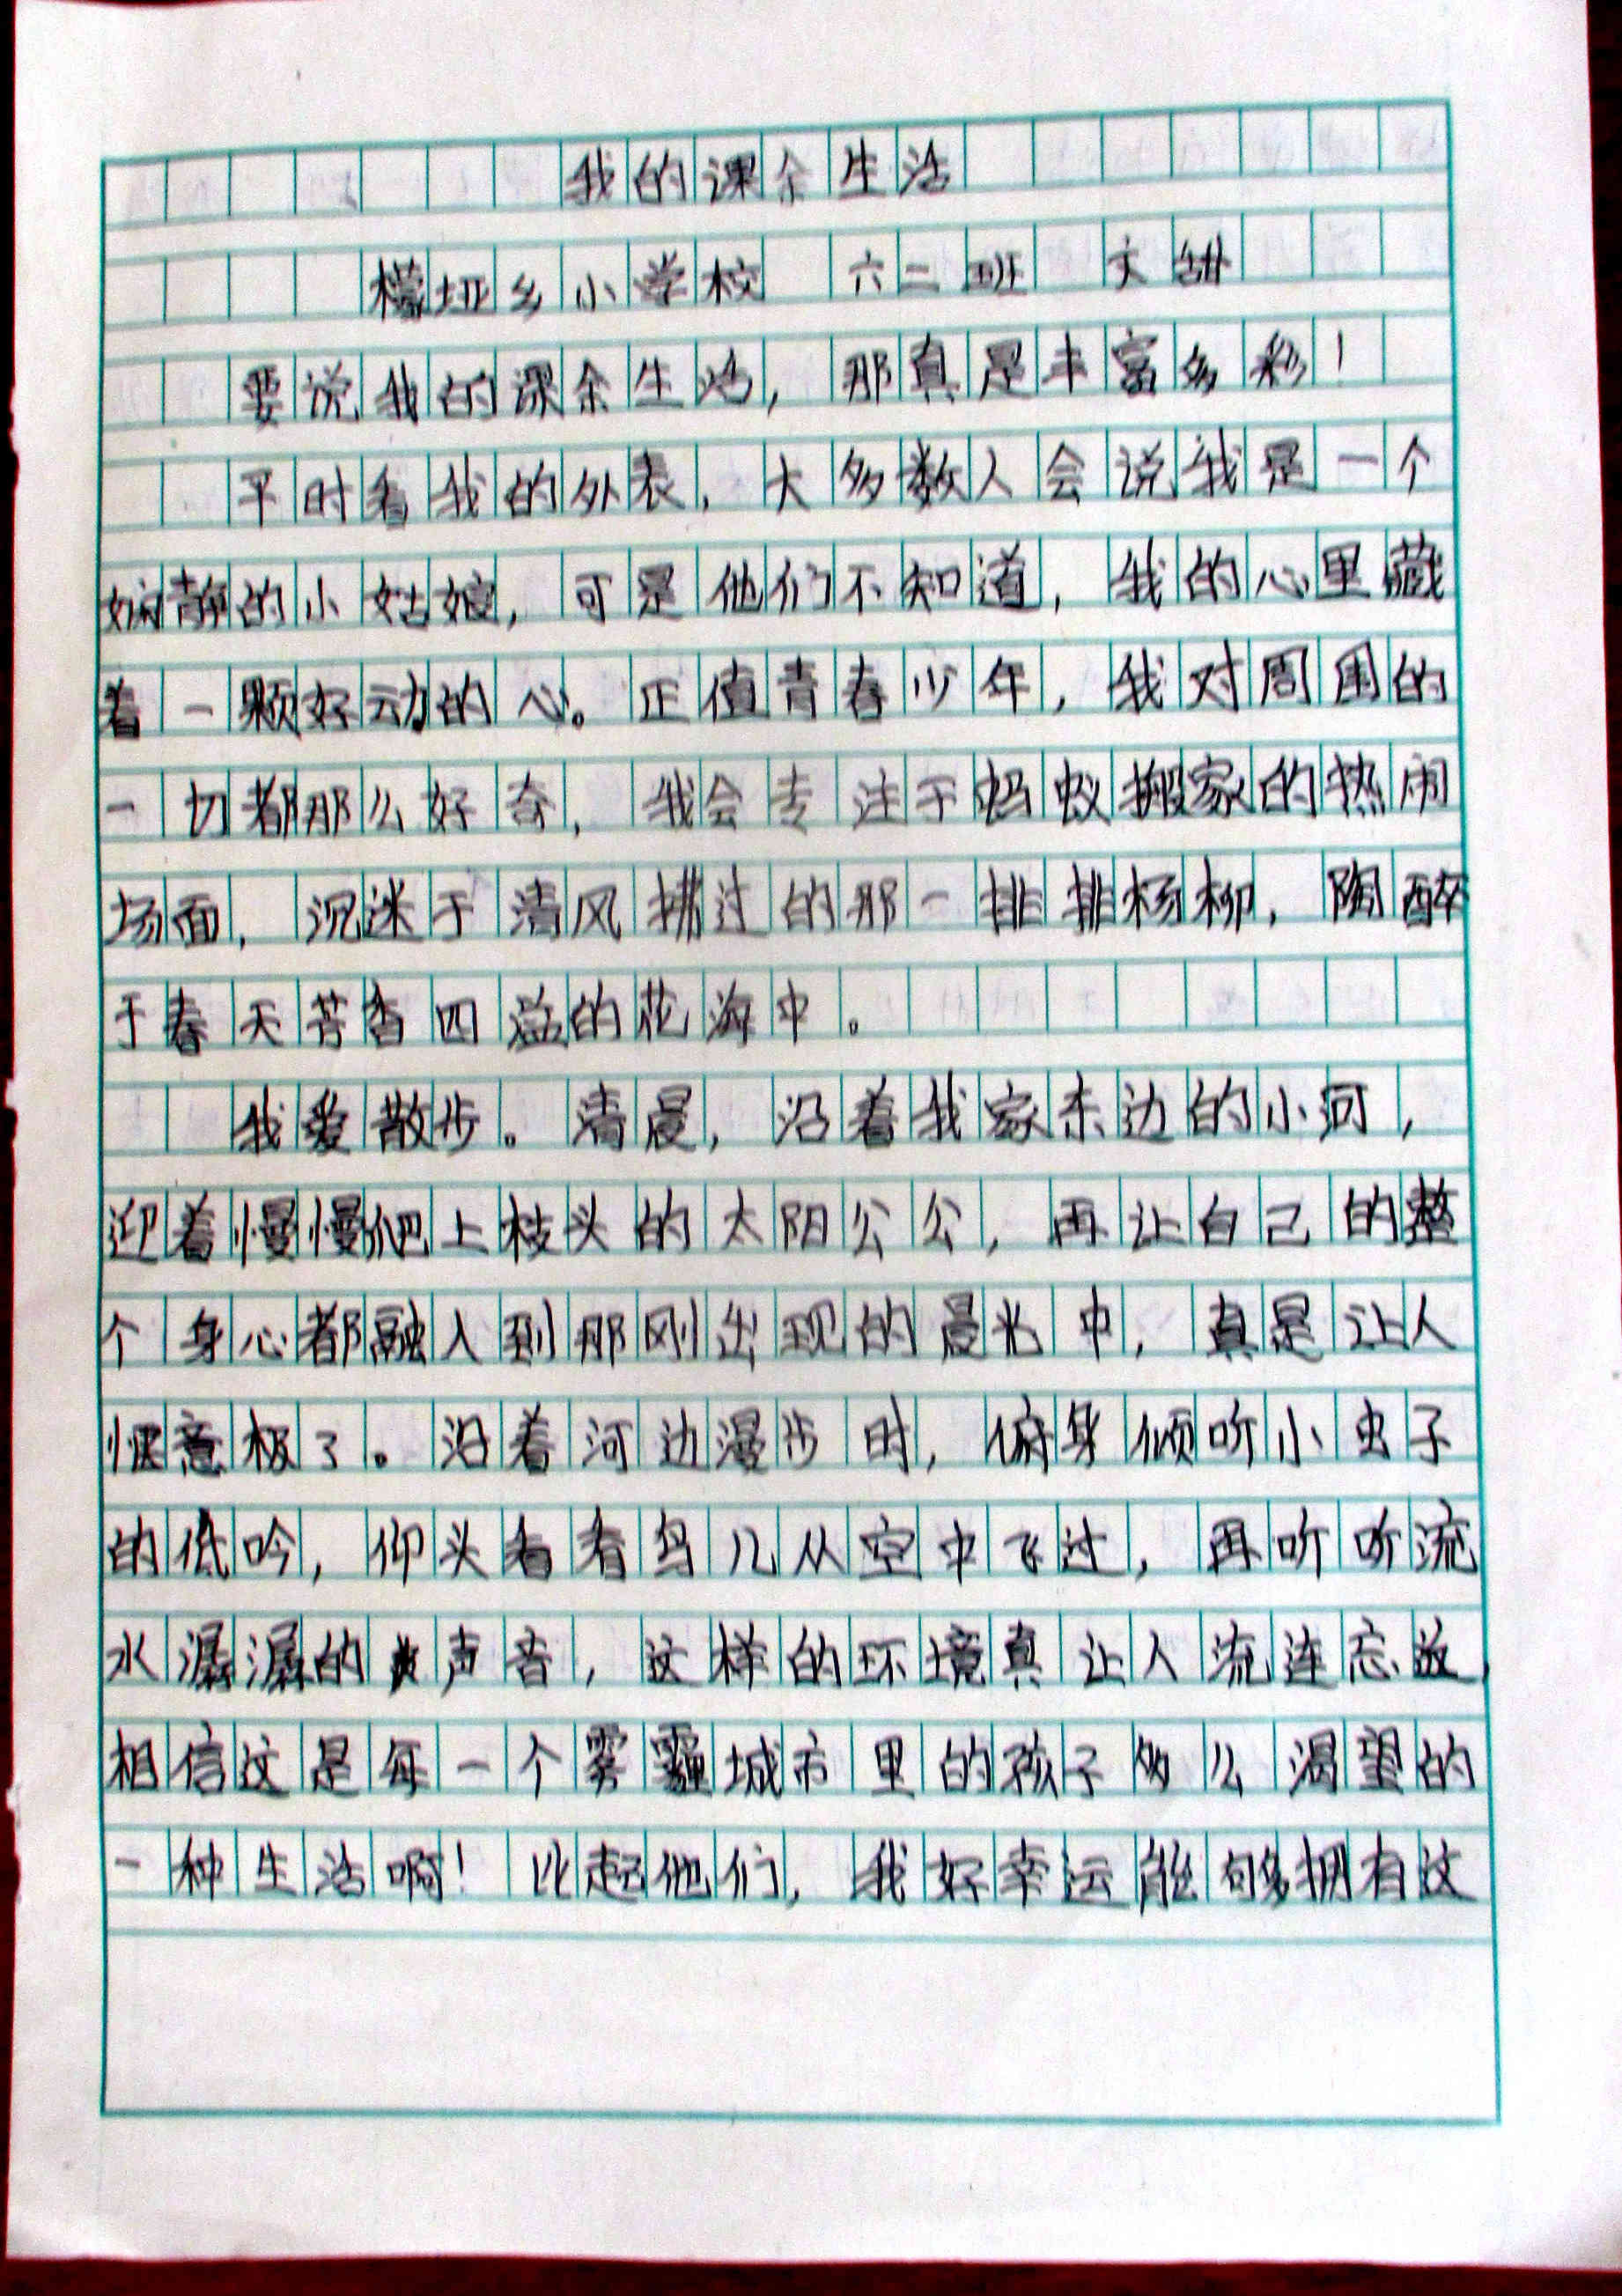 我的课余生活
檬垭乡小学校 六二班 文
要说我的课余生活，那真是丰富多彩！
平时看我的外表，大多数人会说我是一个
娴静的小姑娘，可是他们不知道，我的心里藏
着一颗好动的心。正值青春少年，我对周围的
一切都那么好奇，我会专注于蚂蚁搬家的热闹
场面，沉迷于清风拂过的那一排排杨柳，陶醉
于春天芳香四溢的花海中。
我爱散步。清晨，沿着我家东边的小河，
迎着慢慢爬上枝头的太阳公公，再让自己的整
个身心都融入到那刚出现的晨光中，真是让人
惬意极了。沿着河边漫步时，俯身倾听小虫子
的低吟，仰头看看鸟儿从空中飞过，再听听流
水潺潺的声音，这样的环境真让人流连忘返，
相信这是每一个雾霾城市里的孩子多么渴望的
一种生活啊！比起他们，我好幸运能够拥有这